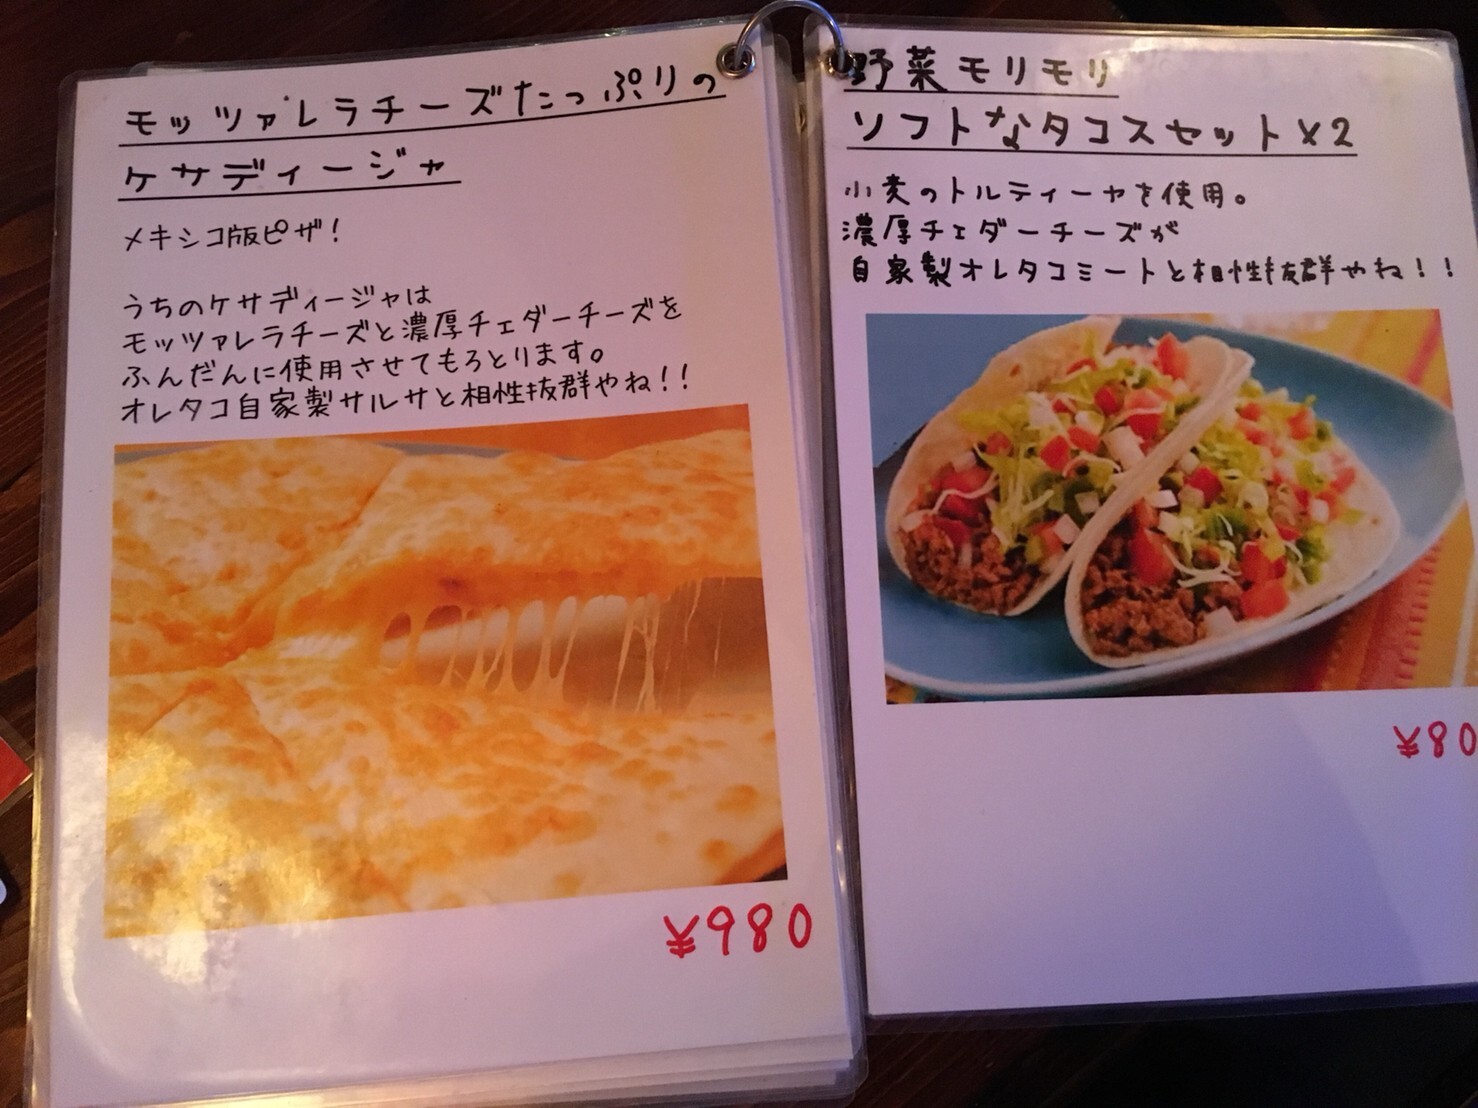 モッツァレラチーズたっぷりの
ケサディージャ
メキシコ版ピザ！
うちのケサディージャは
モッツァレラチーズと濃厚チェダーチーズを
ふんだんに使用させてもろとります。
オレタコ自家製サルサと相性抜群やね！！
¥980
野菜モリモリ
ソフトなタコスセット×2
小麦のトルティーヤを使用。
濃厚チェダーチーズが
自家製オレタコミートと相性抜群やね！！
¥80